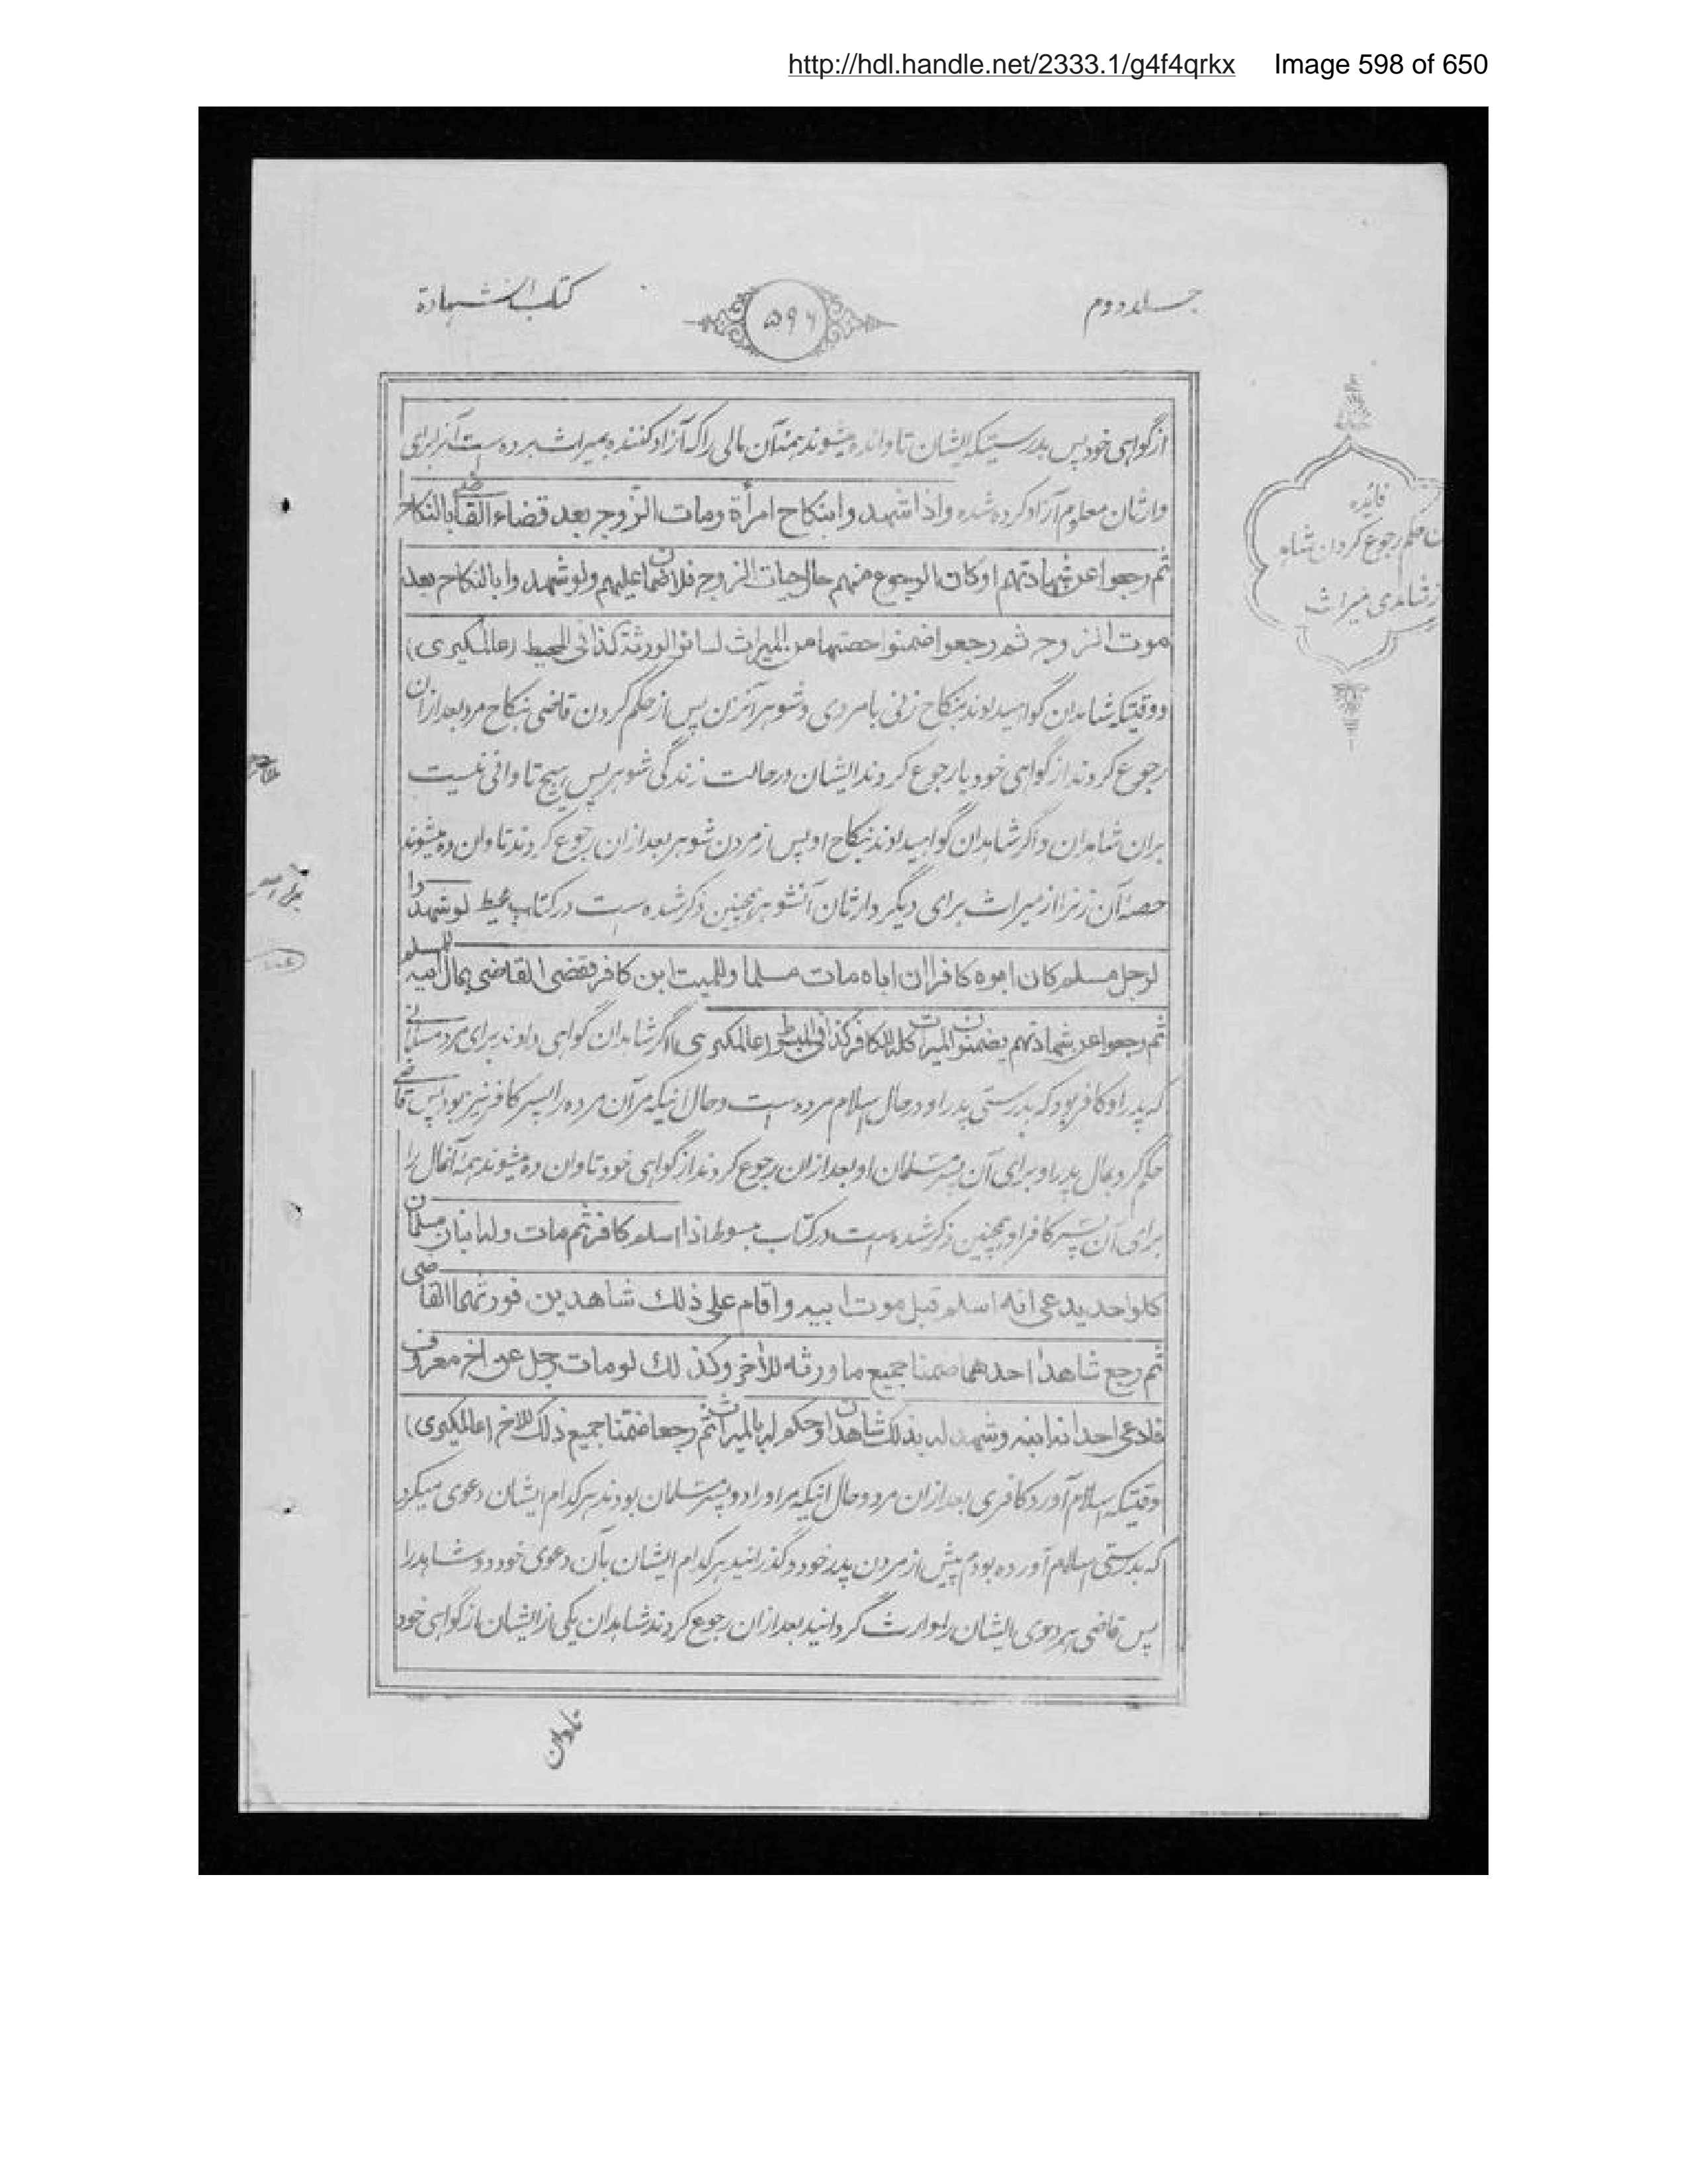 http://hdl.handle.net/2333.1/g4f4qrkx Image 598 of 650
جلد دوم
۵۹۶
کتاب الشهادة
از گواهی خود پس بدرستیکه ایشان تاوانده میشوند همۀ آن مالی را که آزاد کننده بمیراث برده است آنرا برای
وارثان معلوم آزاد کرده شده واذا شهدوا بنکاح امرأة ومات الزوج بعد قضاء القاضی بالنکاح
ثم رجعوا عن شهادتهم او کان الرجوع منهم حال حیات الزوج فلا ضمان علیهم ولو شهدوا بالنکاح بعد
موت الزوج ثم رجعوا ضمنوا حصتها من المیراث لسائر الورثة کذا فی المحیط (عالمگیری)
و وقتیکه شاهدان گواهیدادند بنکاح زنی با مردی و شوهر آنزن پس از حکم کردن قاضی بنکاح مرد بعد ازان
رجوع کردند از گواهی خود یا رجوع کردند ایشان در حالت زندگی شوهر پس هیچ تاوانی نیست
بران شاهدان و اگر شاهدان گواهیدادند بنکاح او پس از مردن شوهر بعد ازان رجوع کردند تاوان ده میشوند
حصۀ آن زنرا از میراث برای دیگر وارثان آنشوهر همچنین ذکر شده است در کتاب محیط لو شهدوا
لرجل مسلم کان ابوه کافرا ان اباه مات مسلما وللمیت ابن کافر فقضی القاضی بمال ابیه للمسلم
ثم رجعوا عن شهادتهم یضمنون المیراث کله للکافر کذا فی المبسوط (عالمگیری) اگر شاهدان گواهی دادند برای مرد مسلمانی
که پدر او کافر بود که بدرستی پدر او در حال اسلام مرده است و حال انیکه مر آن مرده را پسر کافر نیز بود پس قاضی
حکم کرد بمال پدر او برای آن پسر مسلمان او بعد ازان رجوع کردند از گواهی خود تاوان ده میشوند همۀ آنمال را
برای آن پسر کافر او همچنین ذکر شده است در کتاب مبسوط اذا اسلم کافر ثم مات وله ابنان مسلمان
کل واحد یدعی انه اسلم قبل موت ابیه واقام علی ذلک شاهدین فورثهما القاضی
ثم رجع شاهدا احدهما ضمنا جمیع ما ورثه للآخر وکذلک لو مات رجل عن اخ معروف
فادعی احد انه ابنه وشهد له بذلک شاهدان وحکم له بالمیراث ثم رجعا ضمنا جمیع ذلک للاخ (عالمگیری)
وقتیکه اسلام آورد کافری بعد ازان مرد و حال انیکه مر او را دو پسر مسلمان بودند هر کدام ایشان دعوی میکرد
که بدرستی اسلام آورده بودم پیش از مردن پدر خود و گذرانید هر کدام ایشان بآن دعوی خود دو شاهد را
پس قاضی هر دوی ایشان را وارث گردانید بعد ازان رجوع کردند شاهدان یکی از ایشان از گواهی خود
تاوان
فائده
حکم رجوع کردن شاهد
میراث